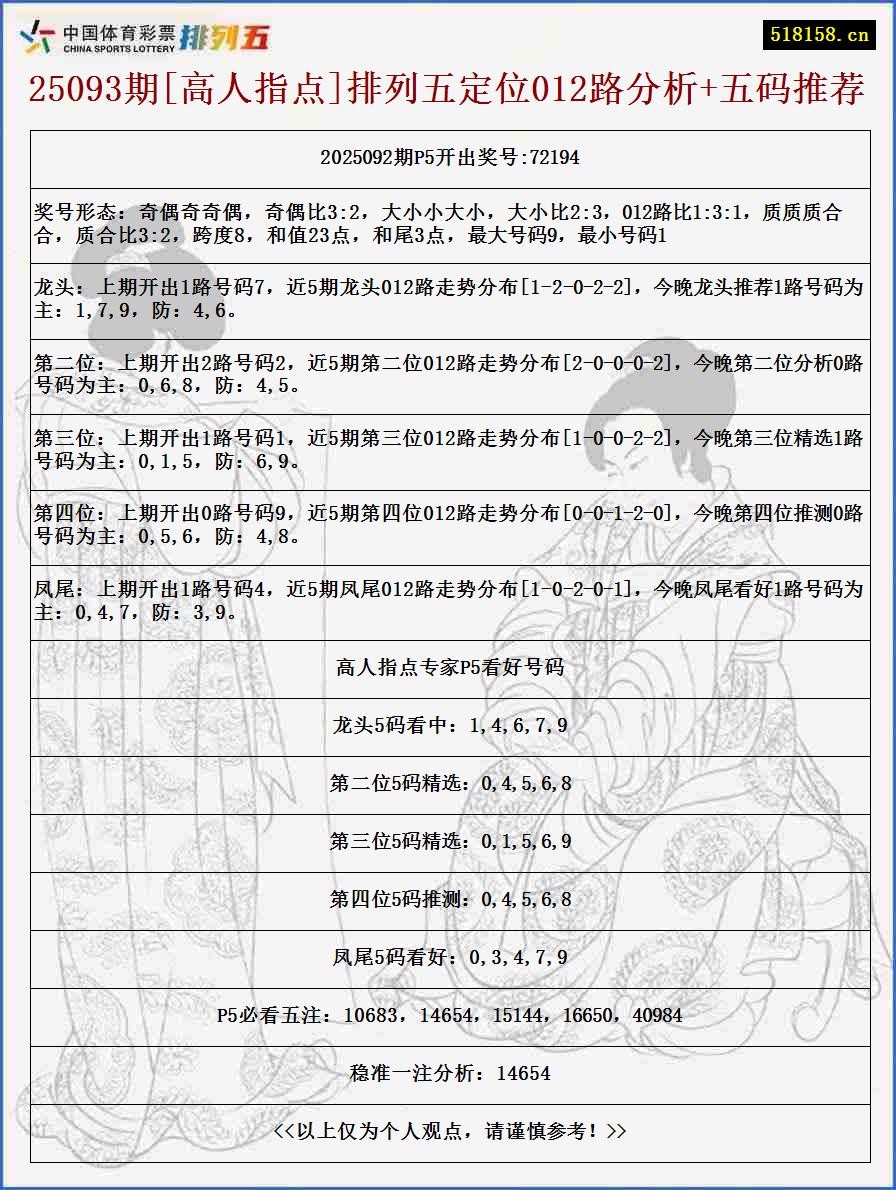 中国体育彩票 排列五
CHINA SPORTS LOTTERY
518158.cn
25093期[高人指点]排列五定位012路分析+五码推荐
2025092期P5开出奖号:72194
奖号形态：奇偶奇奇偶，奇偶比3:2，大小小大小，大小比2:3，012路比1:3:1，质质质合
合，质合比3:2，跨度8，和值23点，和尾3点，最大号码9，最小号码1
龙头：上期开出1路号码7，近5期龙头012路走势分布[1-2-0-2-2]，今晚龙头推荐1路号码为
主：1,7,9，防：4,6。
第二位：上期开出2路号码2，近5期第二位012路走势分布[2-0-0-0-2]，今晚第二位分析0路
号码为主：0,6,8，防：4,5。
第三位：上期开出1路号码1，近5期第三位012路走势分布[1-0-0-2-2]，今晚第三位精选1路
号码为主：0,1,5，防：6,9。
第四位：上期开出0路号码9，近5期第四位012路走势分布[0-0-1-2-0]，今晚第四位推测0路
号码为主：0,5,6，防：4,8。
凤尾：上期开出1路号码4，近5期凤尾012路走势分布[1-0-2-0-1]，今晚凤尾看好1路号码为
主：0,4,7，防：3,9。
高人指点专家P5看好号码
龙头5码看中：1,4,6,7,9
第二位5码精选：0,4,5,6,8
第三位5码精选：0,1,5,6,9
第四位5码推测：0,4,5,6,8
凤尾5码看好：0,3,4,7,9
P5必看五注：10683，14654，15144，16650，40984
稳准一注分析：14654
<<以上仅为个人观点，请谨慎参考！>>